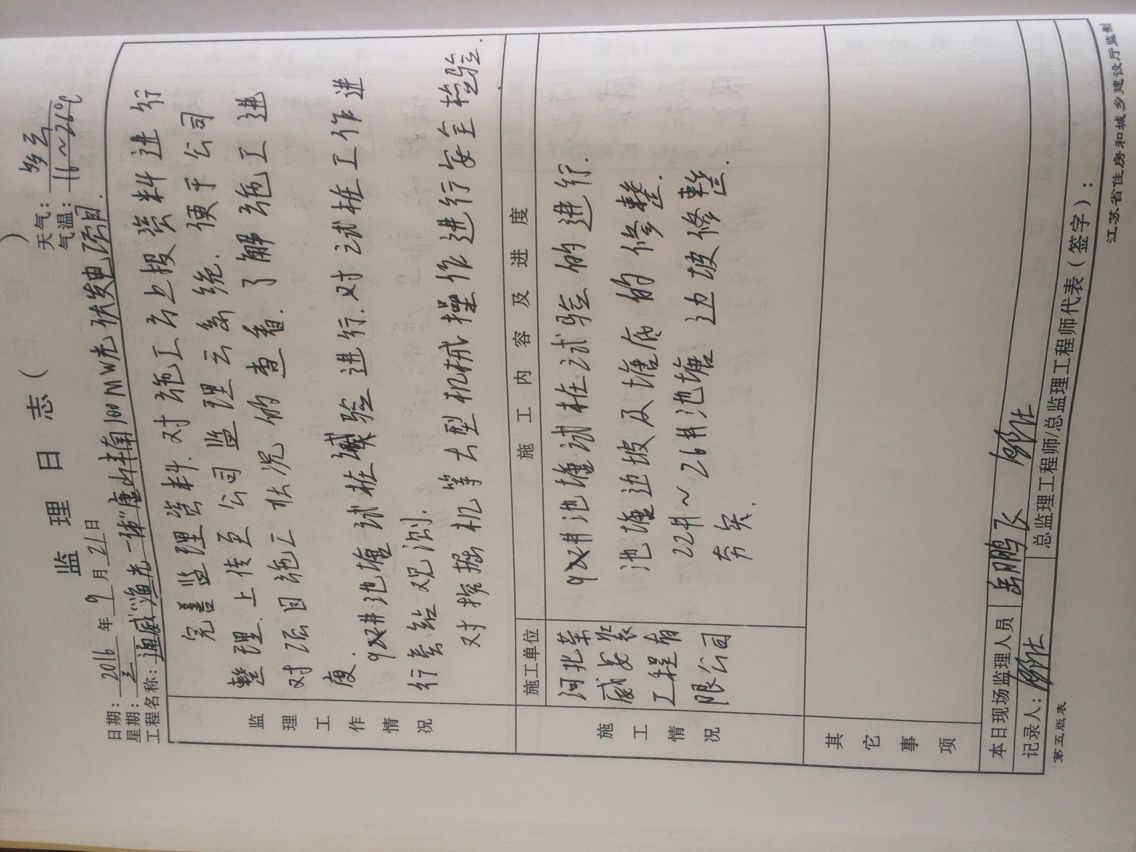 监理日志（ ）
日期：2016年9月21日 天气：多云
星期：三 气温：16~26℃
工程名称：通威"渔光一体"唐山丰南100MW光伏发电项目
监理工作情况
完善监理资料.对施工方上报资料进行
整理、上传至公司监理云系统.便于公司
对项目施工状况的查看.了解施工进
度.
9#井池塘试桩试验进行.对试桩工作进
行旁站观测.
对挖掘机等大型机械操作进行安全检验.
施工情况
施工单位 施工内容及进度
河北荣
威安装
工程有
限公司
9#井池塘试桩试验的进行.
池塘边坡及塘底的修整.
22井~26井池塘边坡修整.
夯实.
其它事项
本日现场监理人员 岳鹏飞
记录人： 总监理工程师/总监理工程师代表（签字）：
第五版表 江苏省住房和城乡建设厅监制